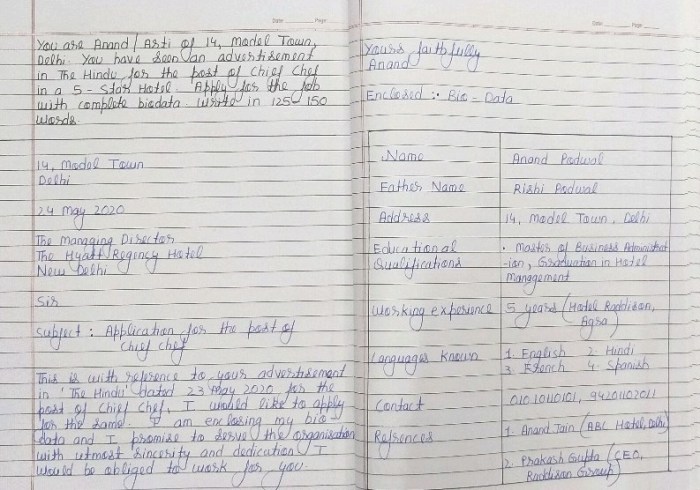 Date Page
You are Anand / Arti of 14, Model Town,
Delhi. You have seen an advertisement
in The Hindu for the post of Chief Chef
in a 5 - Star Hotel. Apply for the job
with complete biodata. Write in 125-150
words.
14, Model Town
Delhi
24 May 2020
The Managing Director
The Hyatt Regency Hotel
New Delhi
Sir
Subject : Application for the post of
Chief Chef
This is with reference to your advertisement
in 'The Hindu' dated 23 May 2020 for the
post of Chief Chef, I would like to apply
for the same. I am enclosing my bio-
data and I promise to serve the organisation
with utmost sincerity and dedication. I
would be obliged to work for you.
Date Page
Yours faithfully
Anand
Enclosed :- Bio - Data
Name Anand Padwal
Father Name Rishi Padwal
Address 14, Model Town, Delhi
Educational • Master of Business Administrat
Qualifications -ion, Graduation in Hotel
Management
Working experience 5 years (Hotel Raddison,
Agra)
Languages Known 1. English 2. Hindi
3. French 4. Spanish
Contact 01010110101, 94201102011
Refrences 1. Anand Jain (ABC Hotel, Delhi)
2. Prakash Gupta (CEO,
Raddison Group)